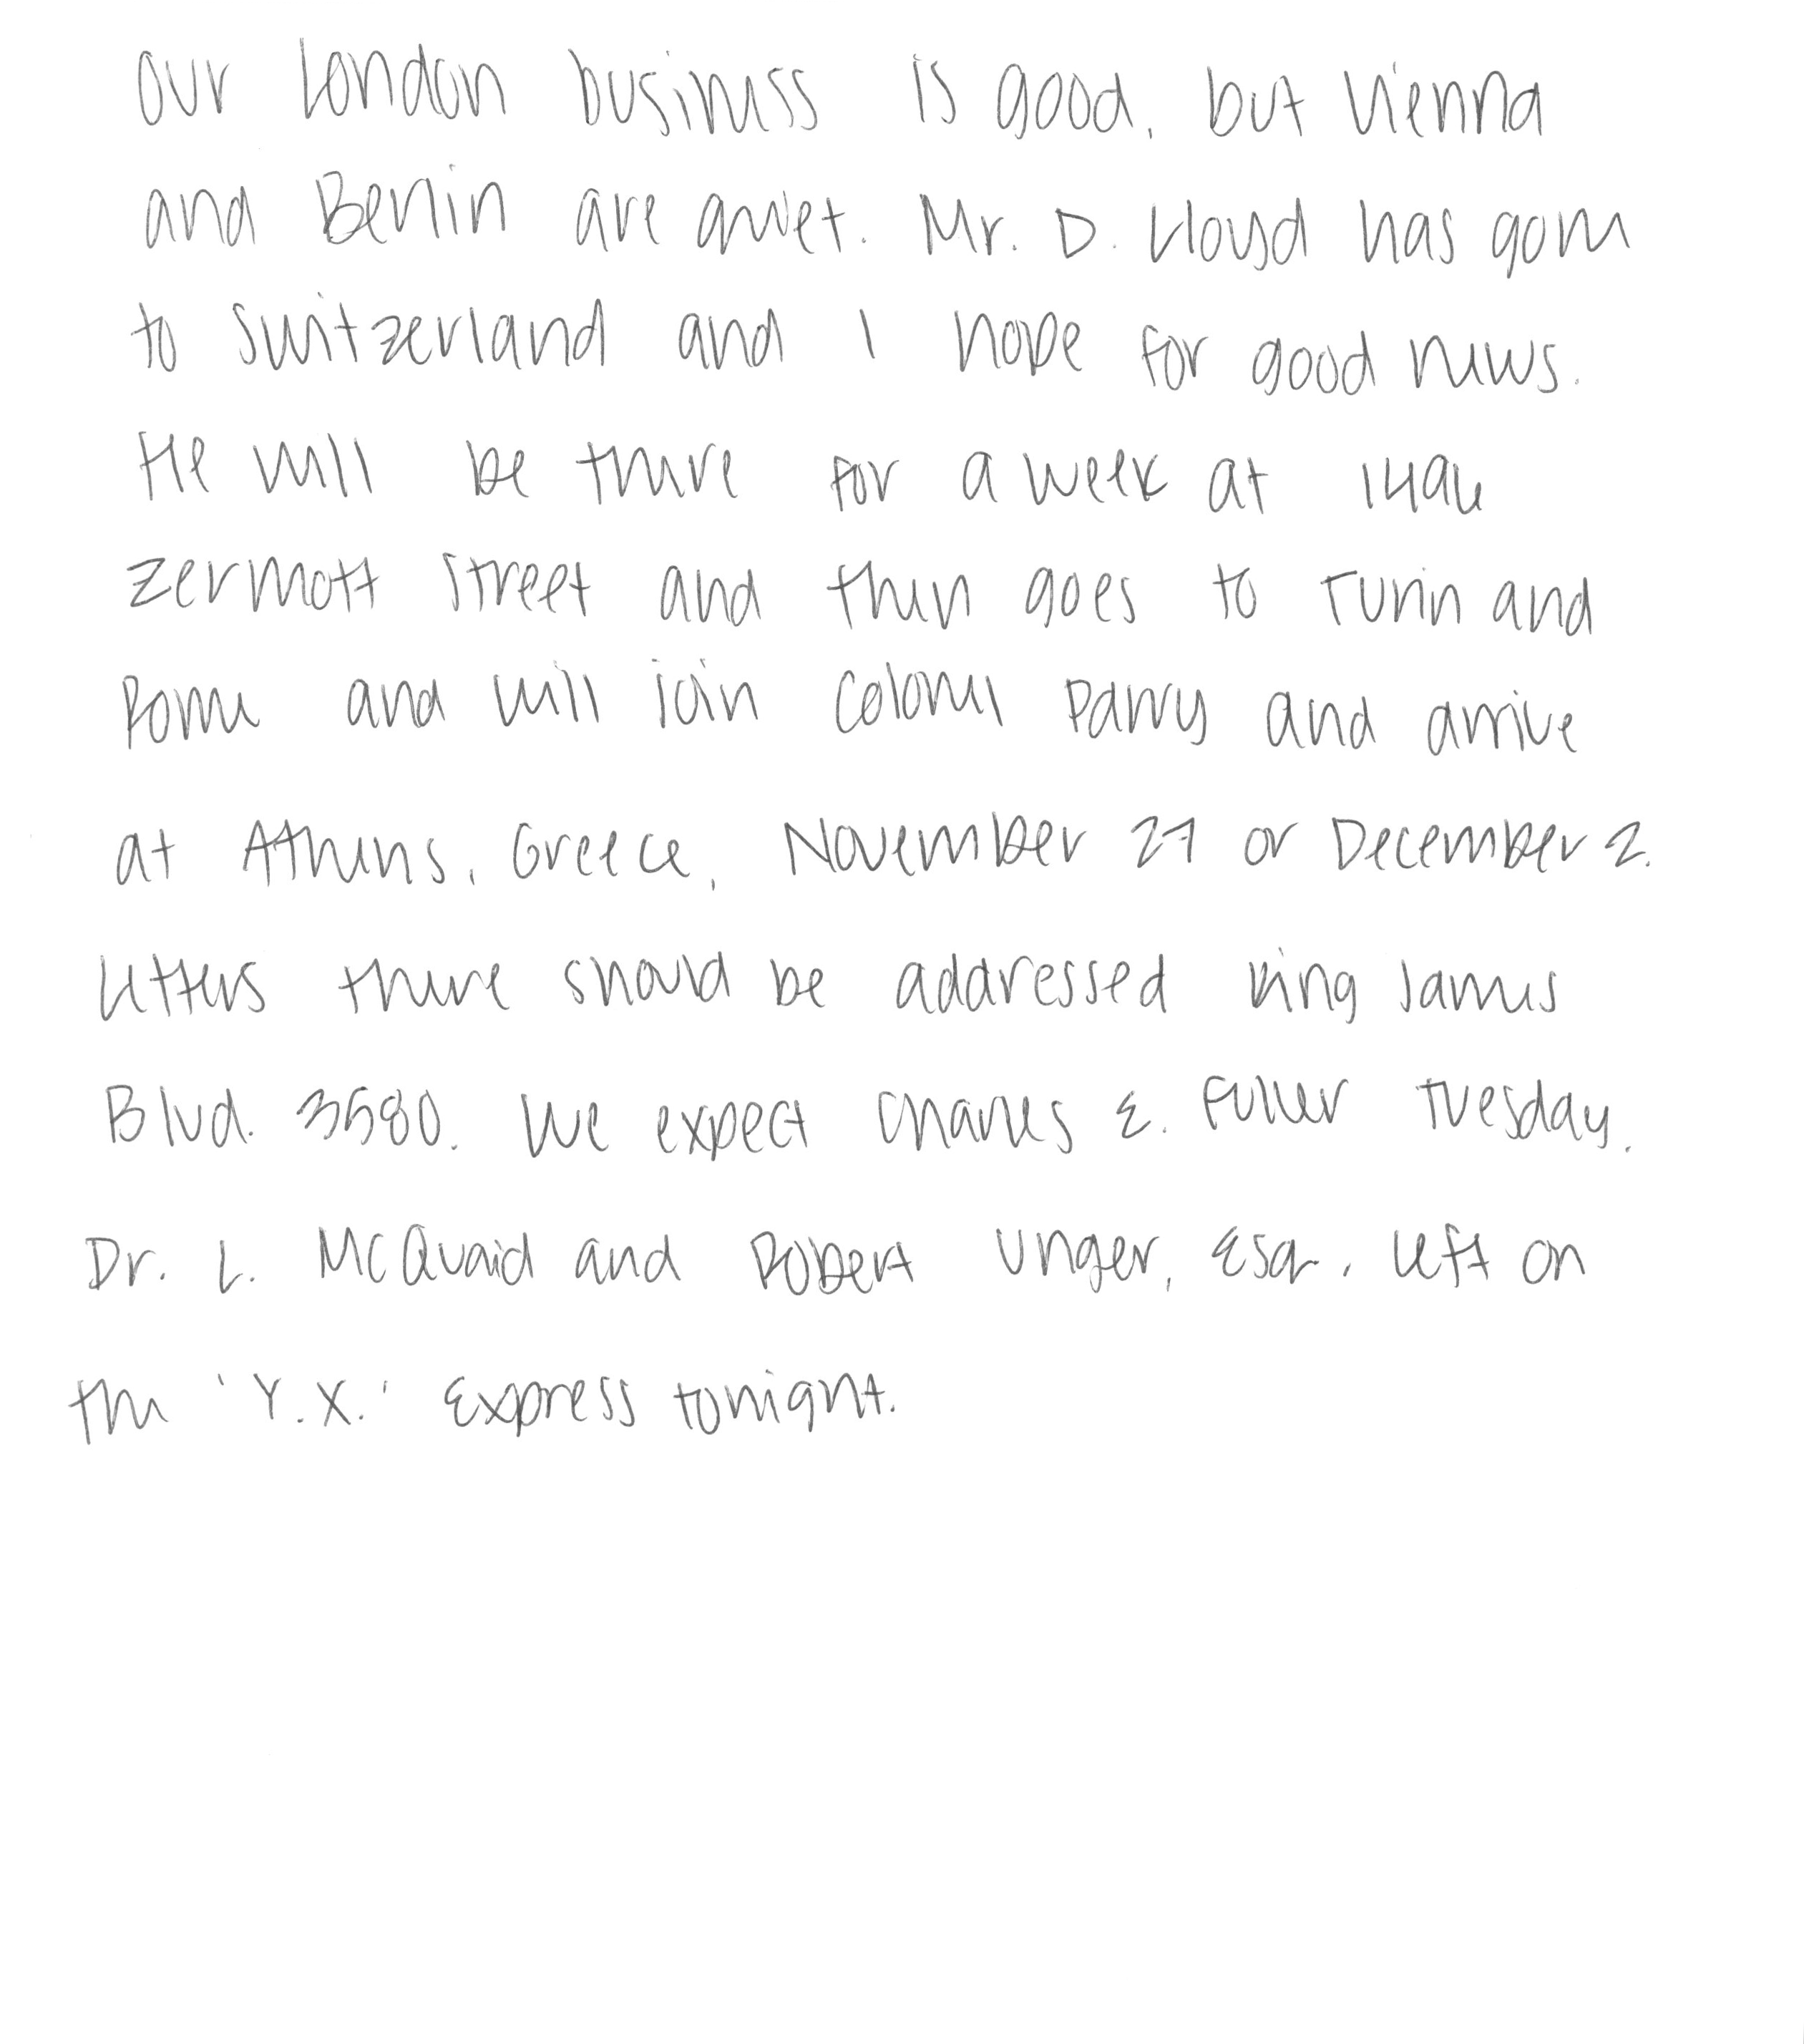 Our London business is good, but Vienna
and Berlin are quiet. Mr. D. Lloyd has gone
to Switzerland and I hope for good news.
He will be there for a week at 1496
Zermott Street and then goes to Turin and
Rome and will join Colonel Parry and arrive
at Athens, Greece, November 27 or December 2.
Letters there should be addressed King James
Blvd. 3580. We expect Charles E. Fuller Tuesday.
Dr. L. McQuaid and Robert Unger, Esq., left on
the 'Y.X.' Express tonight.